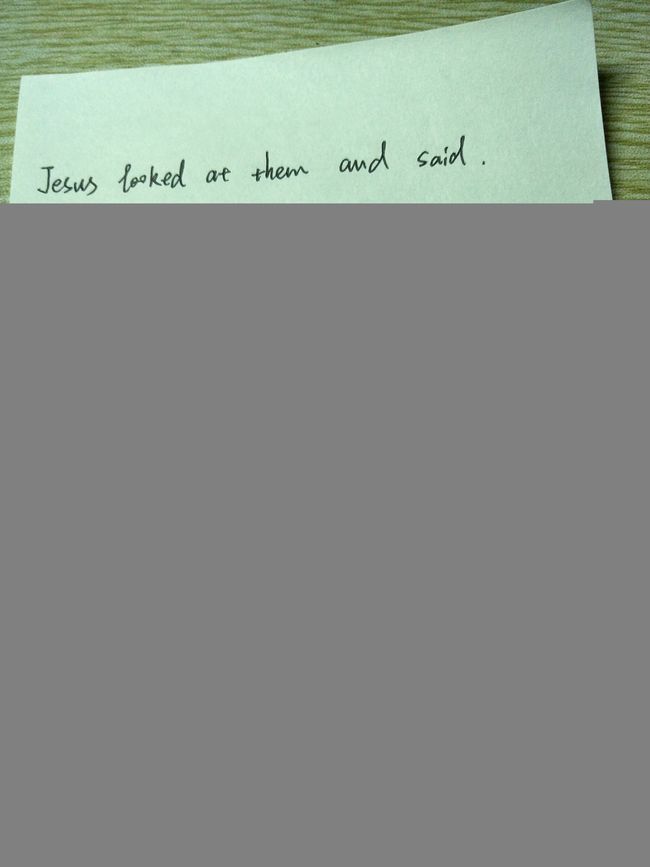 Jesus looked at them and said.